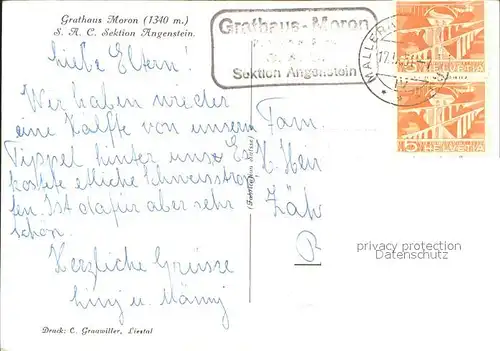 Grathaus Moron (1340 m.)
S. A. C. Sektion Angenstein.
Grathaus-Moron
Sektion Angenstein
MALLERAY
HELVETIA
5
HELVETIA
Liebe Eltern!
Wir haben wieder
eine Hälfte von unserm
Tippel hinter uns. Es
kostete etliche Schweisstrop-
fen. Ist dafür aber sehr
schön.
Herzliche Grüsse
u.
Fam.
H. Hein
Zäh
privacy protection
Watermark
Druck: C. Grauwiller, Liestal